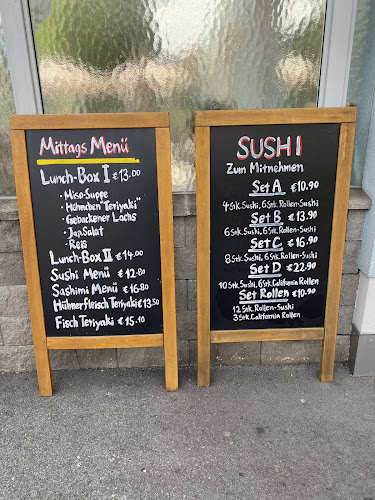 Mittags Menü
Lunch-Box I €13.00
• Miso-Suppe
• Hühnchen "Teriyaki"
• Gebackener Lachs
• Jap.Salat
• Reis
Lunch-Box II €14.00
Sushi Menü €12.80
Sashimi Menü €16.80
Hühnerfleisch Teriyaki €13.50
Fisch Teriyaki €15.10
SUSHI
Zum Mitnehmen
Set A €10.90
4 Stk. Sushi, 6 Stk. Rollen-Sushi
Set B €13.90
6 Stk. Sushi, 6 Stk. Rollen-Sushi
Set C €16.90
8 Stk. Sushi, 6 Stk. Rollen-Sushi
Set D €22.90
10 Stk. Sushi, 6 Stk. California Rollen
Set Rollen €10.90
12 Stk. Rollen-Sushi
3 Stk. California Rollen